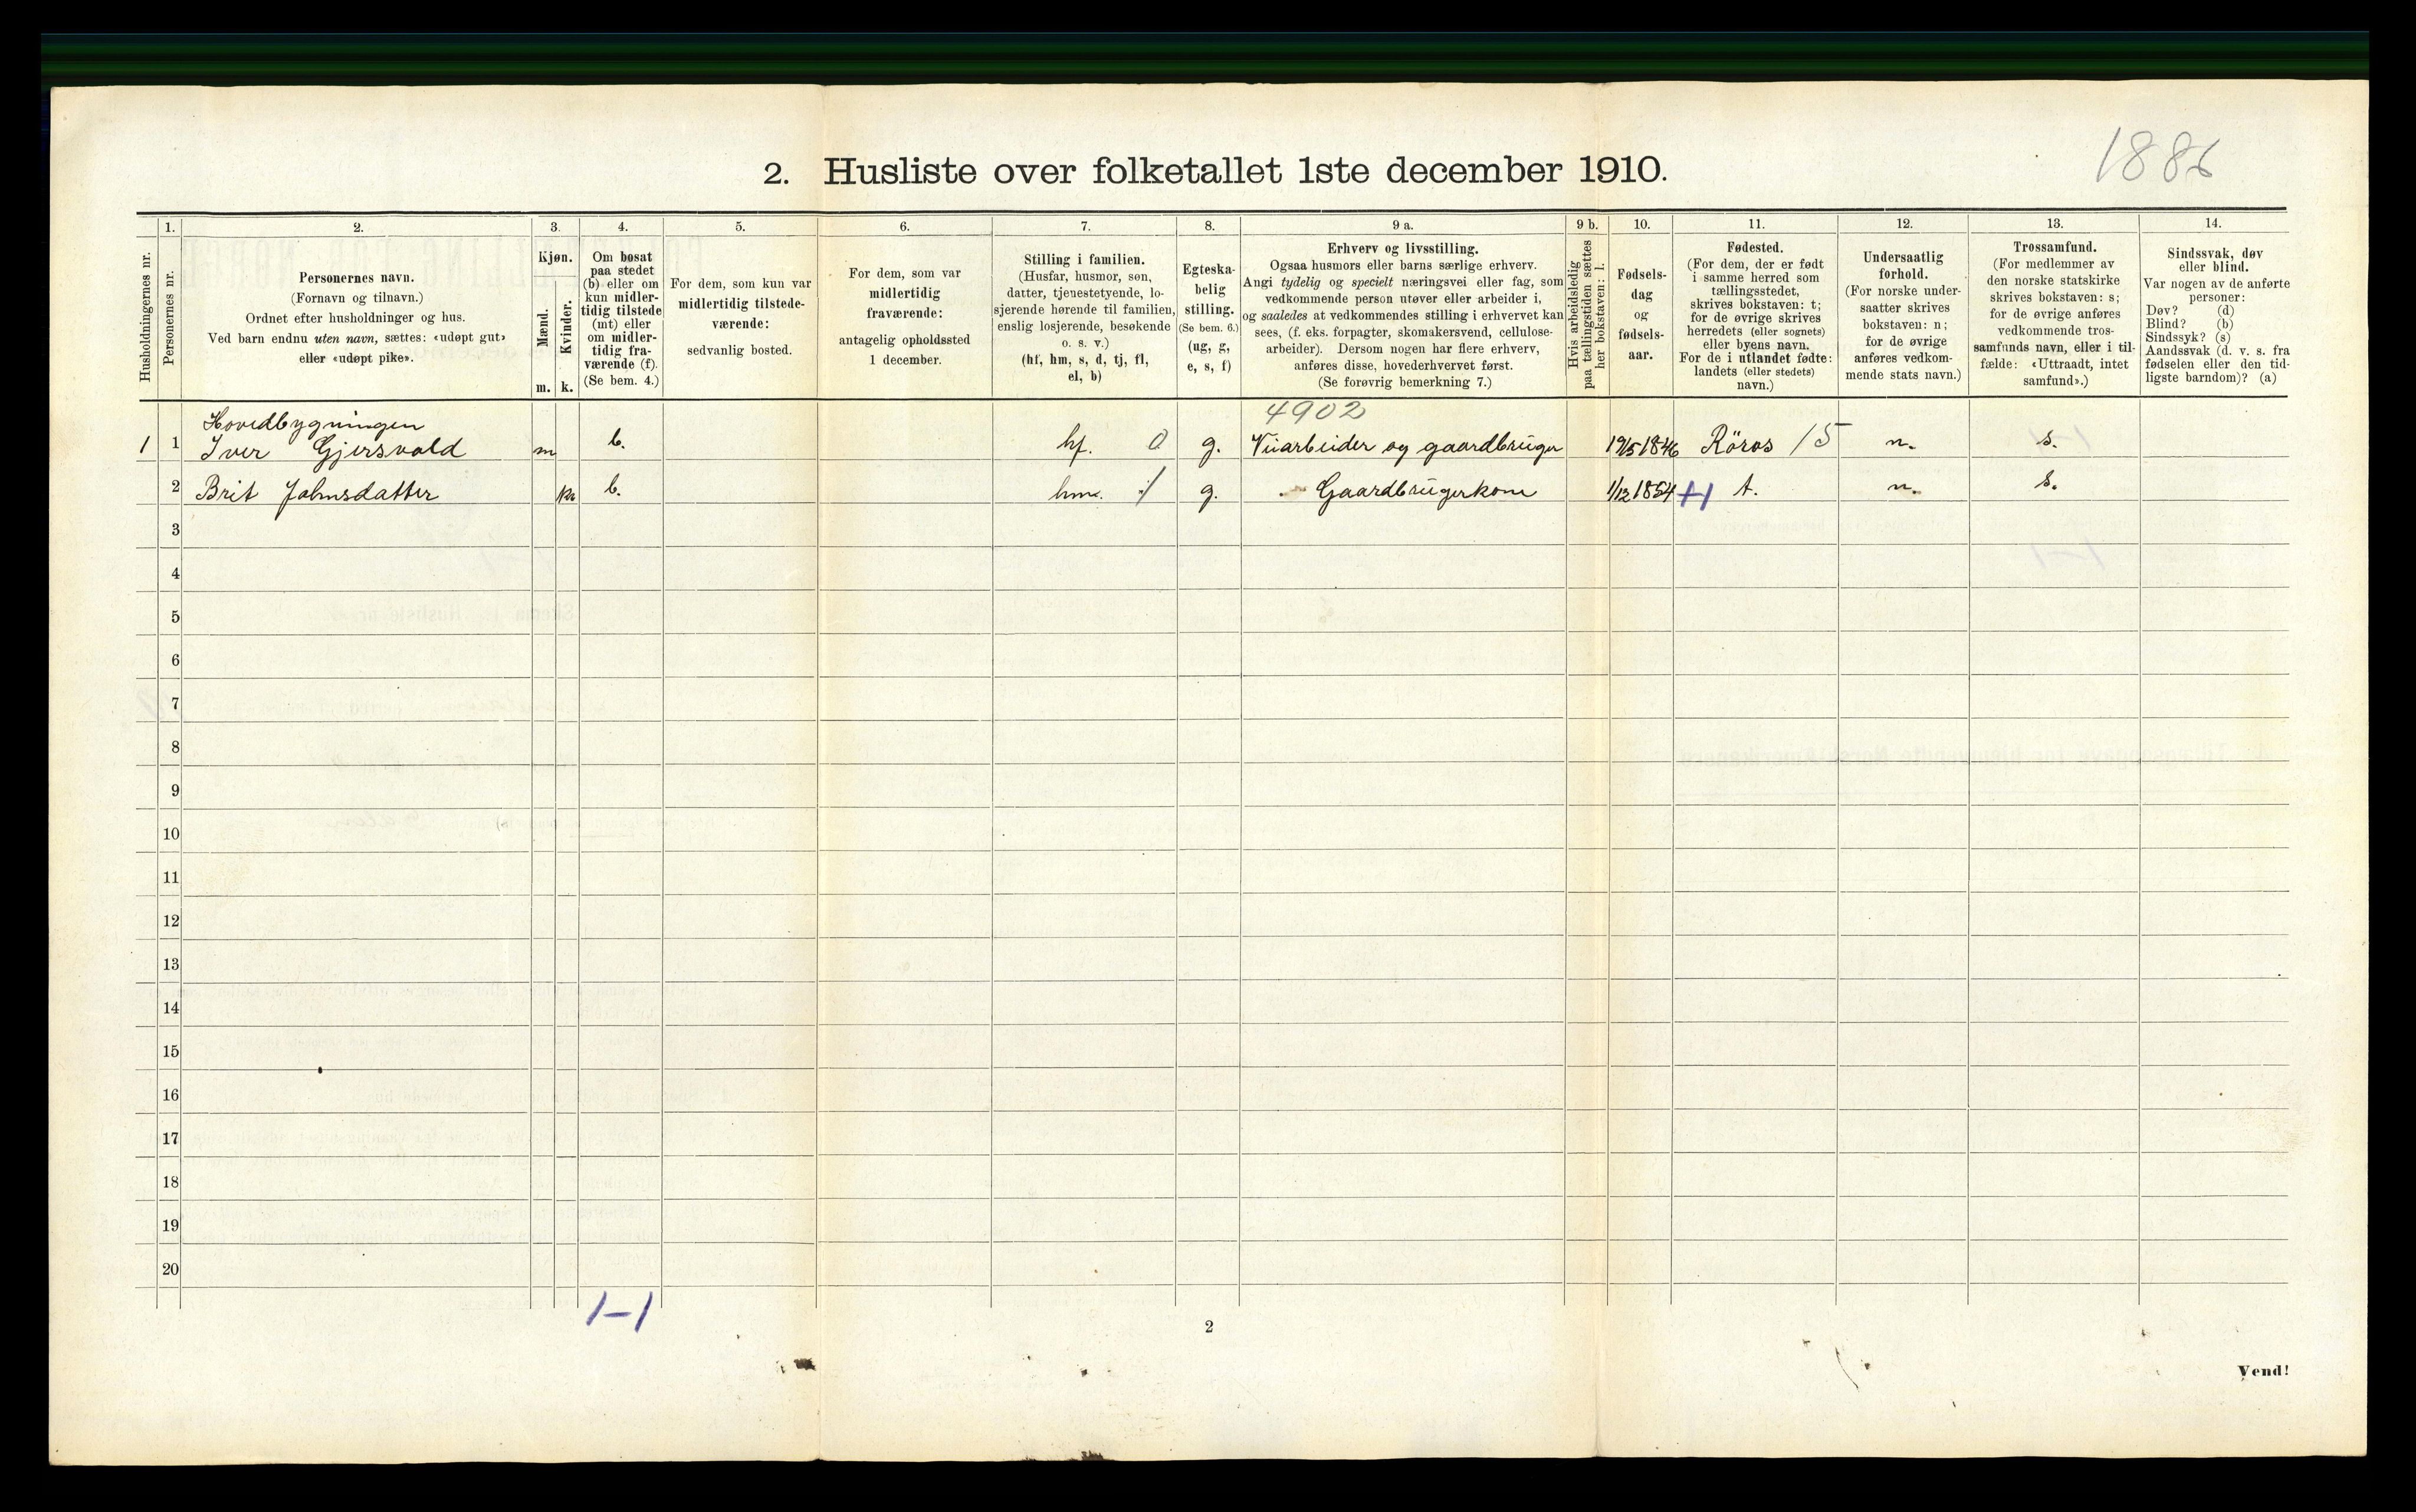 1886
2. Husliste over folketallet 1ste december 1910.
Husholdningernes nr.
1.
Personernes nr.
2.
Personernes navn.
(Fornavn og tilnavn.)
Ordnet efter husholdninger og hus.
Ved barn endnu uten navn, sættes: «udøpt gut»
eller «udøpt pike».
3.
Kjøn.
Mænd.
Kvinder.
m. k.
4.
Om bosat
paa stedet
(b) eller om
kun midler-
tidig tilstede
(mt) eller
om midler-
tidig fra-
værende (f).
(Se bem. 4.)
5.
For dem, som kun var
midlertidig tilstede-
værende:
sedvanlig bosted.
6.
For dem, som var
midlertidig
fraværende:
antagelig opholdssted
1 december.
7.
Stilling i familien.
(Husfar, husmor, søn,
datter, tjenestetyende, lo-
sjerende hørende til familien,
enslig losjerende, besøkende
o. s. v.)
(hf, hm, s, d, tj, fl,
el, b)
8.
Egteska-
belig
stilling.
(Se bem. 6.)
(ug, g,
e, s, f)
9 a.
Erhverv og livsstilling.
Ogsaa husmors eller barns særlige erhverv.
Angi tydelig og specielt næringsvei eller fag, som
vedkommende person utøver eller arbeider i,
og saaledes at vedkommendes stilling i erhvervet kan
sees, (f. eks. forpagter, skomakersvend, cellulose-
arbeider). Dersom nogen har flere erhverv,
anføres disse, hovederhvervet først.
(Se forøvrig bemerkning 7.)
9 b.
Hvis arbeidsledig
paa tællingstiden sættes
her bokstaven: l.
10.
Fødsels-
dag
og
fødsels-
aar.
11.
Fødested.
(For dem, der er født
i samme herred som
tællingsstedet,
skrives bokstaven: t;
for de øvrige skrives
herredets (eller sognets)
eller byens navn.
For de i utlandet fødte:
landets (eller stedets)
navn.)
12.
Undersaatlig
forhold.
(For norske under-
saatter skrives
bokstaven: n;
for de øvrige
anføres vedkom-
mende stats navn.)
13.
Trossamfund.
(For medlemmer av
den norske statskirke
skrives bokstaven: s;
for de øvrige anføres
vedkommende tros-
samfunds navn, eller i til-
fælde: «Uttraadt, intet
samfund».)
14.
Sindssvak, døv
eller blind.
Var nogen av de anførte
personer:
Døv? (d)
Blind? (b)
Sindssyk? (s)
Aandssvak (d. v. s. fra
fødselen eller den tid-
ligste barndom)? (a)
Hovedbygningen 4902
1 1 Iver Gjersvold m b. hf. 0 g. Veiarbeider og gaardbruger 19/5 1846 Röros 15 n. s.
2 Brit Johnsdatter k b. hm. g. Gaardbrugerkone 1/12 1854 t. n. s.
3
4
5
6
7
8
9
10
11
12
13
14
15
16
17
18
19
20
1–1
2
Vend!